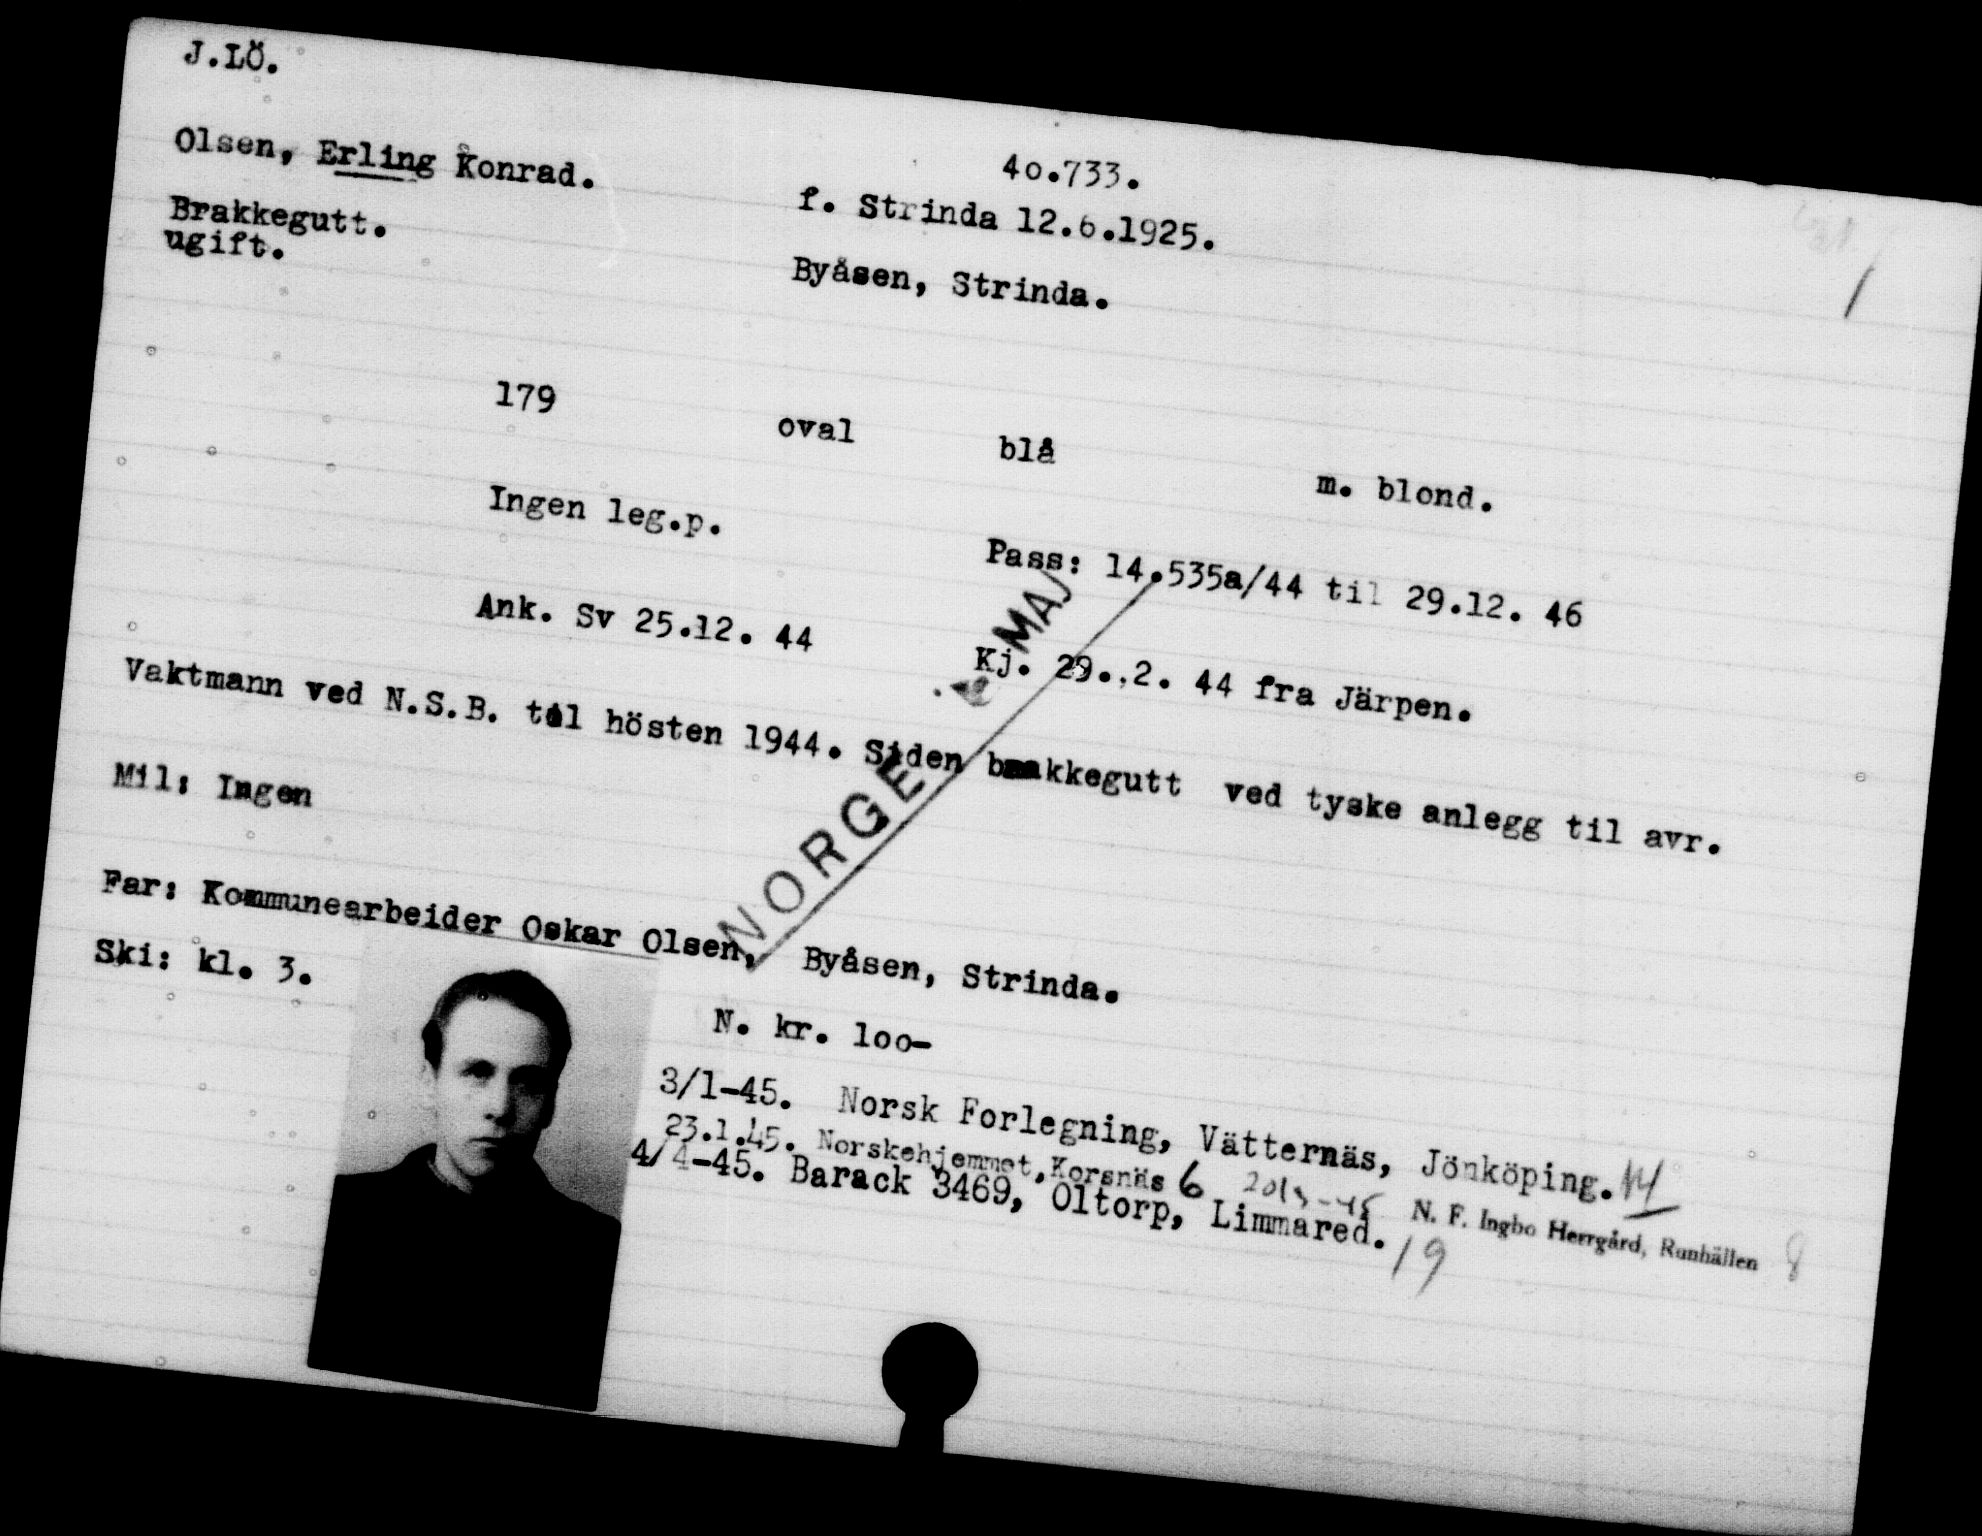 J.LÖ.
40.733.
Olsen, Erling Konrad.
f. Strinda 12.6.1925.
Brakkegutt.
ugift.
Byåsen, Strinda.
179 oval blå m. blond.
Ingen leg.p.
Pass: 14.535a/44 til 29.12. 46
Ank. Sv 25.12. 44
Kj. 29.12. 44 fra Järpen.
MAJ
NORGE
Vaktmann ved N.S.B. til hösten 1944. Siden brakkegutt ved tyske anlegg til avr.
Mil: Ingen
Far: Kommunearbeider Oskar Olsen, Byåsen, Strinda.
Ski: kl. 3.
N. kr. 100-
3/1-45. Norsk Forlegning, Vätternäs, Jönköping. 14
23.1.45. Norskehjemmet, Korsnäs 6 20/3-45 N. F. Ingbo Herrgård, Runhällen 8
4/4-45. Barack 3469, Oltorp, Limmared. 19